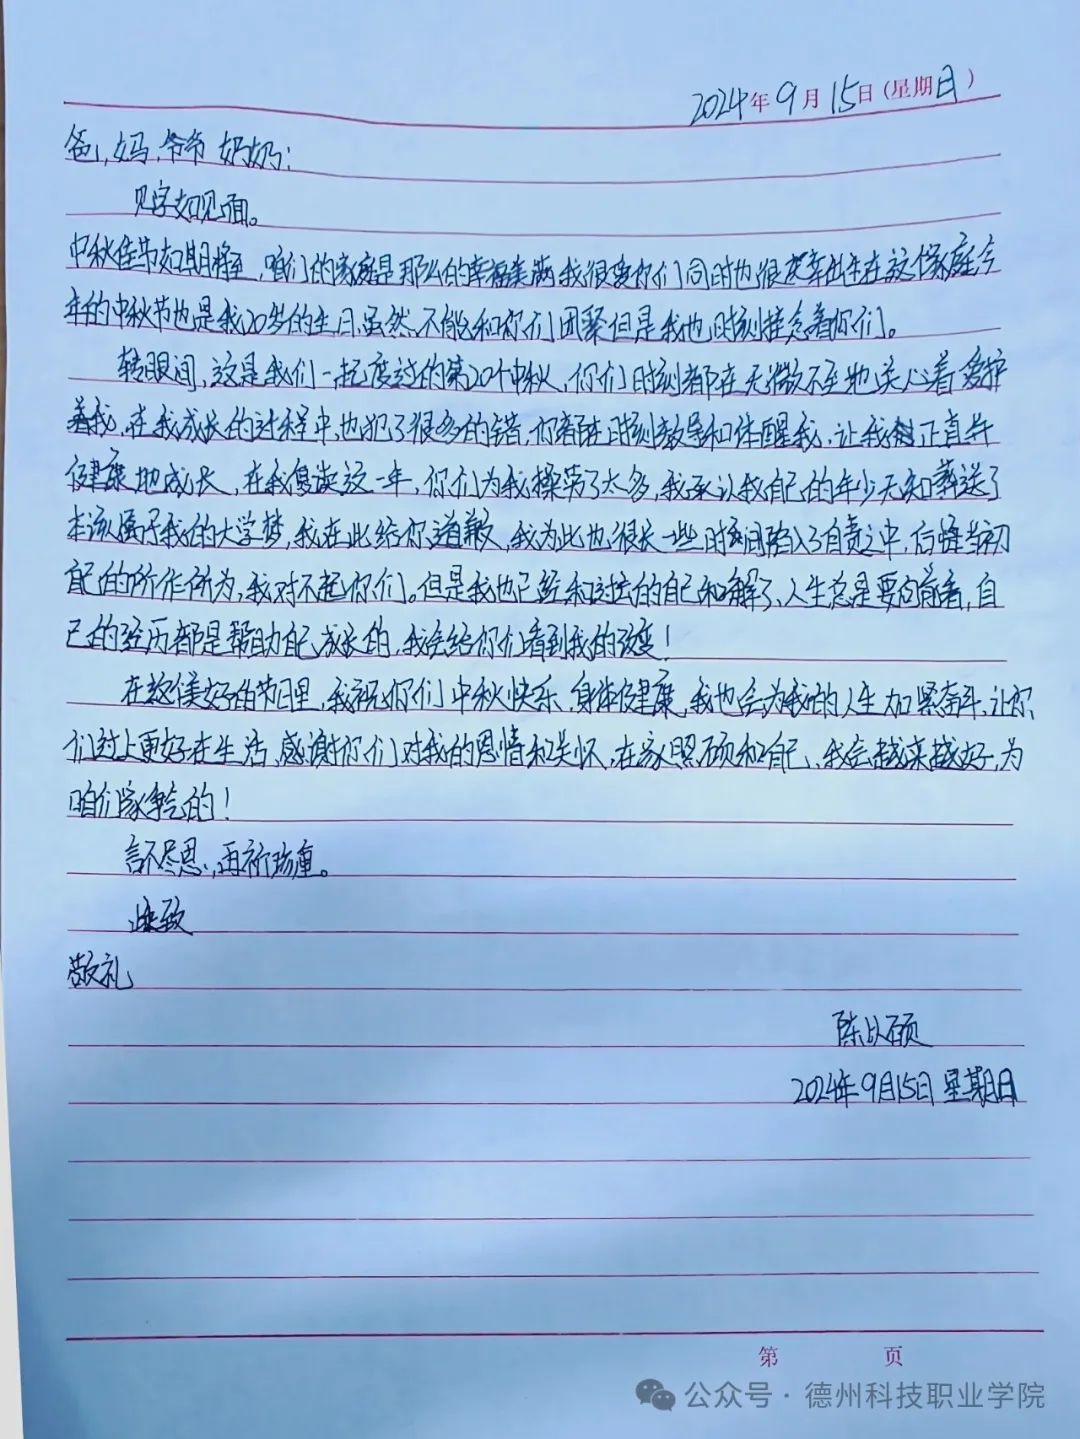 2024年9月15日(星期日)
爸,妈,爷爷 奶奶:
见字如见面。
中秋佳节如期将至,咱们的家庭是那么的幸福美满,我很爱你们同时也很庆幸出生在这个家庭今
年的中秋节也是我20岁的生日,虽然不能和你们团聚但是我也时刻挂念着你们。
转眼间,这是我们一起度过的第20个中秋,你们时刻都在无微不至地关心着爱护
着我,在我成长的过程中,也犯了很多的错,你都在时刻教导和体醒我,让我正直并
健康地成长,在我复读这一年,你们为我操劳了太多,我承认我自己的年少无知葬送了
本该属于我的大学梦,我在此给你道歉,我为此也很长一些时间陷入了自责之中,后悔当初
自己的所作所为,我对不起你们。但是我也已经和过去的自己和解了,人生总是要向前看,自
己的经历都是帮助自己成长的,我会给你们看到我的改变!
在这美好的节日里,我祝你们中秋快乐,身体健康,我也会为我的人生加紧奋斗,让你
们过上更好在生活,感谢你们对我的恩情和关怀,在家照顾和自己,我会越来越好,为
咱们家争气的!
言不尽思,再祈珍重。
此致
敬礼
陈以硕
2024年9月15日 星期日
第 页
公众号·德州科技职业学院